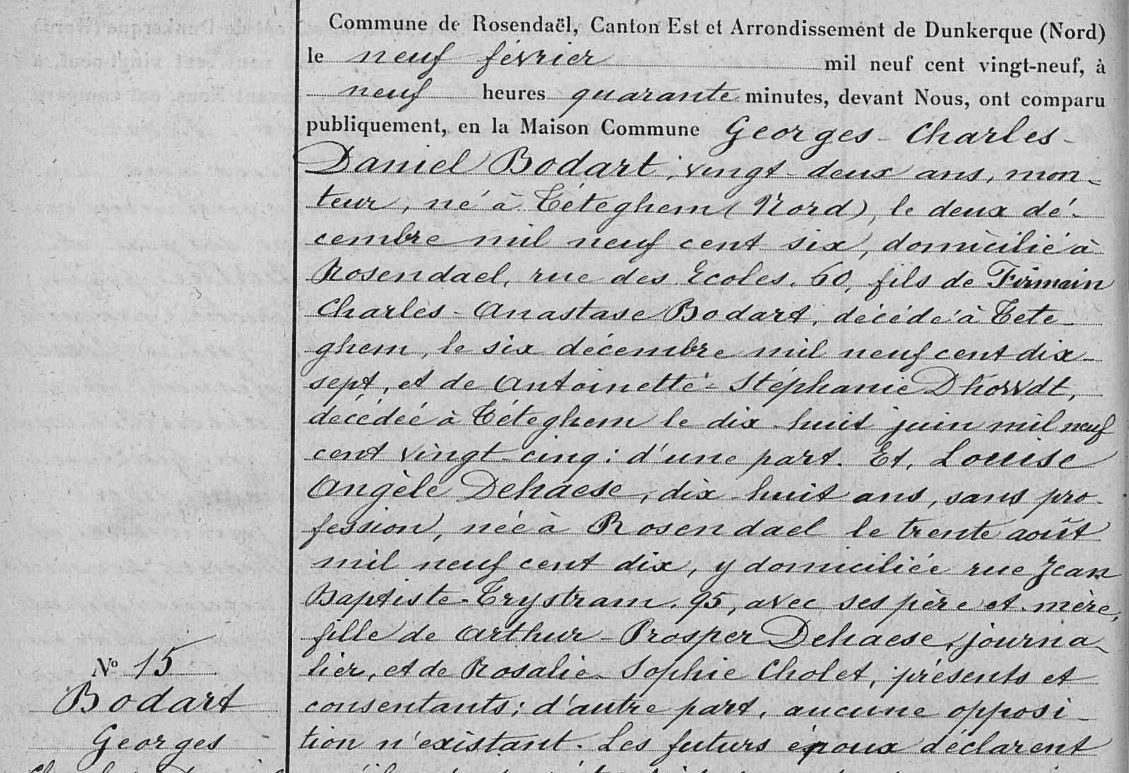 Commune de Rosendaël, Canton Est et Arrondissement de Dunkerque (Nord)
le neuf février mil neuf cent vingt-neuf, à
neuf heures quarante minutes, devant Nous, ont comparu
publiquement, en la Maison Commune Georges - Charles -
Daniel Bodart, vingt-deux ans, mon-
teur, né à Téteghem (Nord), le deux dé-
cembre mil neuf cent six, domicilié à
Rosendael, rue des Ecoles, 60, fils de Firmin
Charles - Anastase Bodart, décédé à Téte-
ghem, le six décembre mil neuf cent dix-
sept, et de Antoinette - Stéphanie Dhorvdt,
décédée à Téteghem le dix-huit juin mil neuf
cent vingt-cinq: d'une part. Et, Louise
Angèle Dehaese, dix-huit ans, sans pro-
fession, née à Rosendael le trente août
mil neuf cent dix, y domiciliée rue Jean
Baptiste-Trystram, 95, avec ses père et mère,
fille de Arthur - Prosper Dehaese, journa-
lier, et de Rosalie - Sophie Cholet, présents et
consentants; d'autre part, aucune opposi-
tion n'existant. Les futurs époux déclarent
N° 15
Bodart
Georges